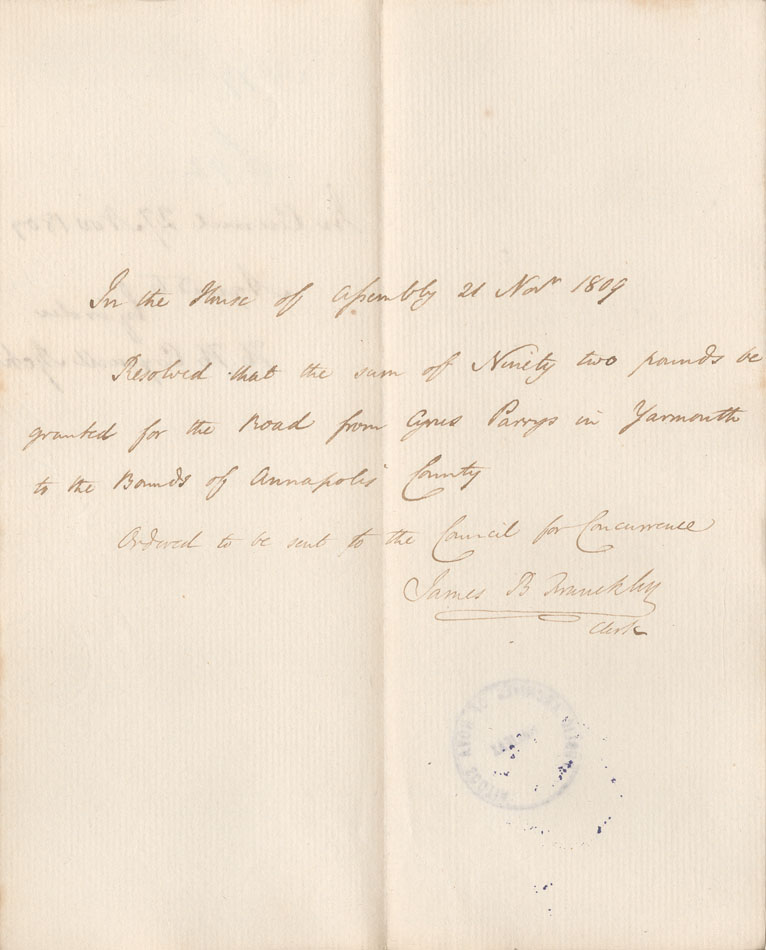 In the House of Assembly 21 Novr 1809
Resolved that the sum of Ninety two pounds be
granted for the Road from Cyrus Parrys in Yarmouth
to the Bounds of Annapolis County
Ordered to be sent to the Council for Concurrence
James B Franckley
Clerk
In Council 27 Nov 1809
NOVA SCOTIA